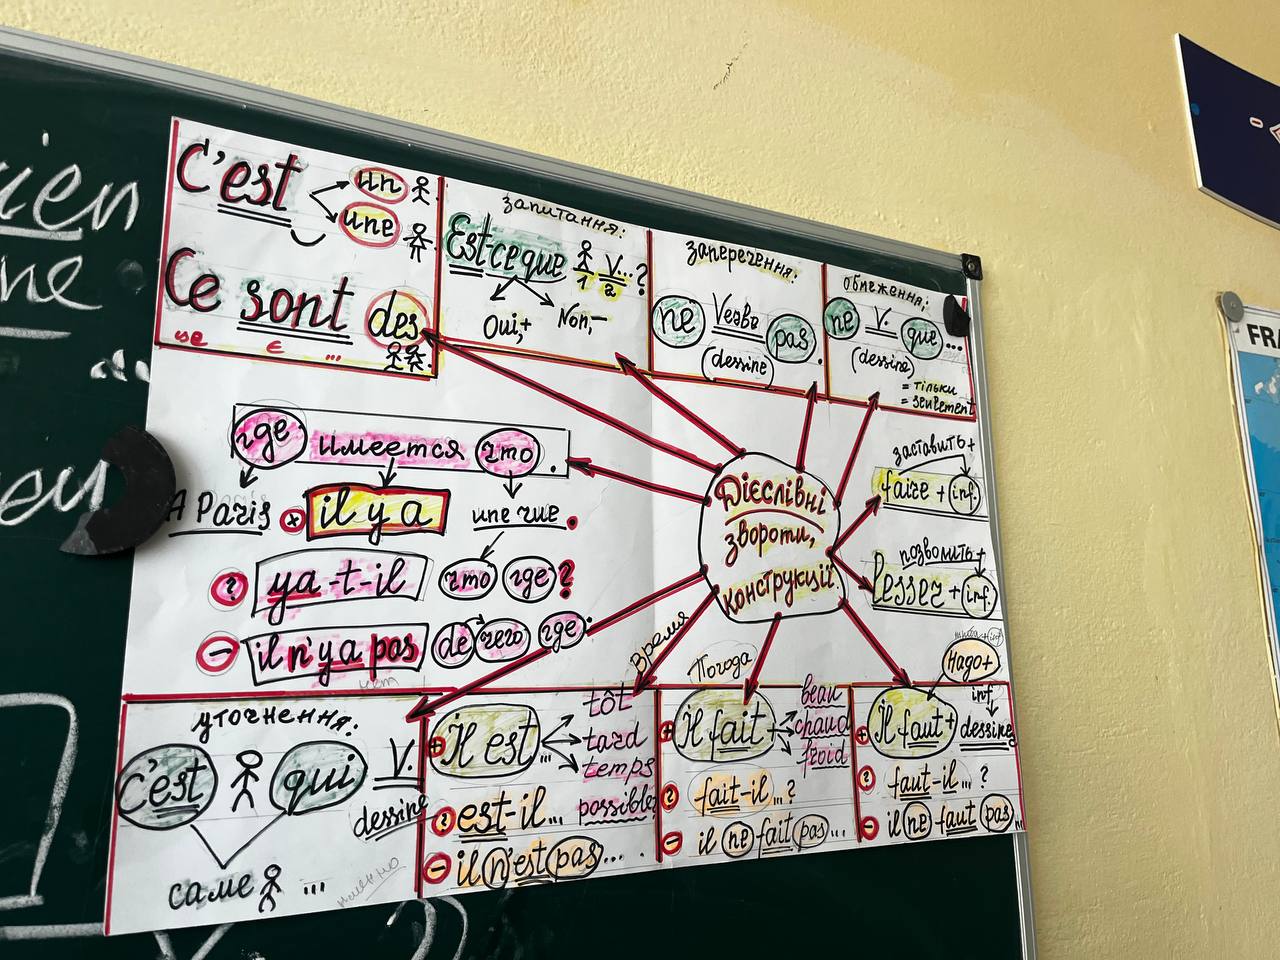 ien
ne
eu
C'est
un
une
Ce sont des
це є ...
запитання:
Est ce que V...?
1 2
Oui,+
Non,-
заперечення:
ne Verbe pas
(dessine)
обмеження:
ne V. que...
(dessine)
= тільки
= seulement
где имеется что.
A Paris + il y a une rue.
? ya-t-il что где?
− il n'y a pas de чего где.
нет
Дієслівні
звороти,
конструкції
заставить+
faire + inf.
позволить+
lessez + inf.
Время
Погода
Надо+
inf.
уточнення:
c'est qui V.
dessine
саме ...
именно
+ Il est ...
tôt
tard
temps
possible
? est-il...
− il n'est pas...
+ Il fait
beau
chaud
froid
? fait-il...?
− il ne fait pas...
+ Il faut + dessiner
? faut-il...?
− il ne faut pas...
FRA